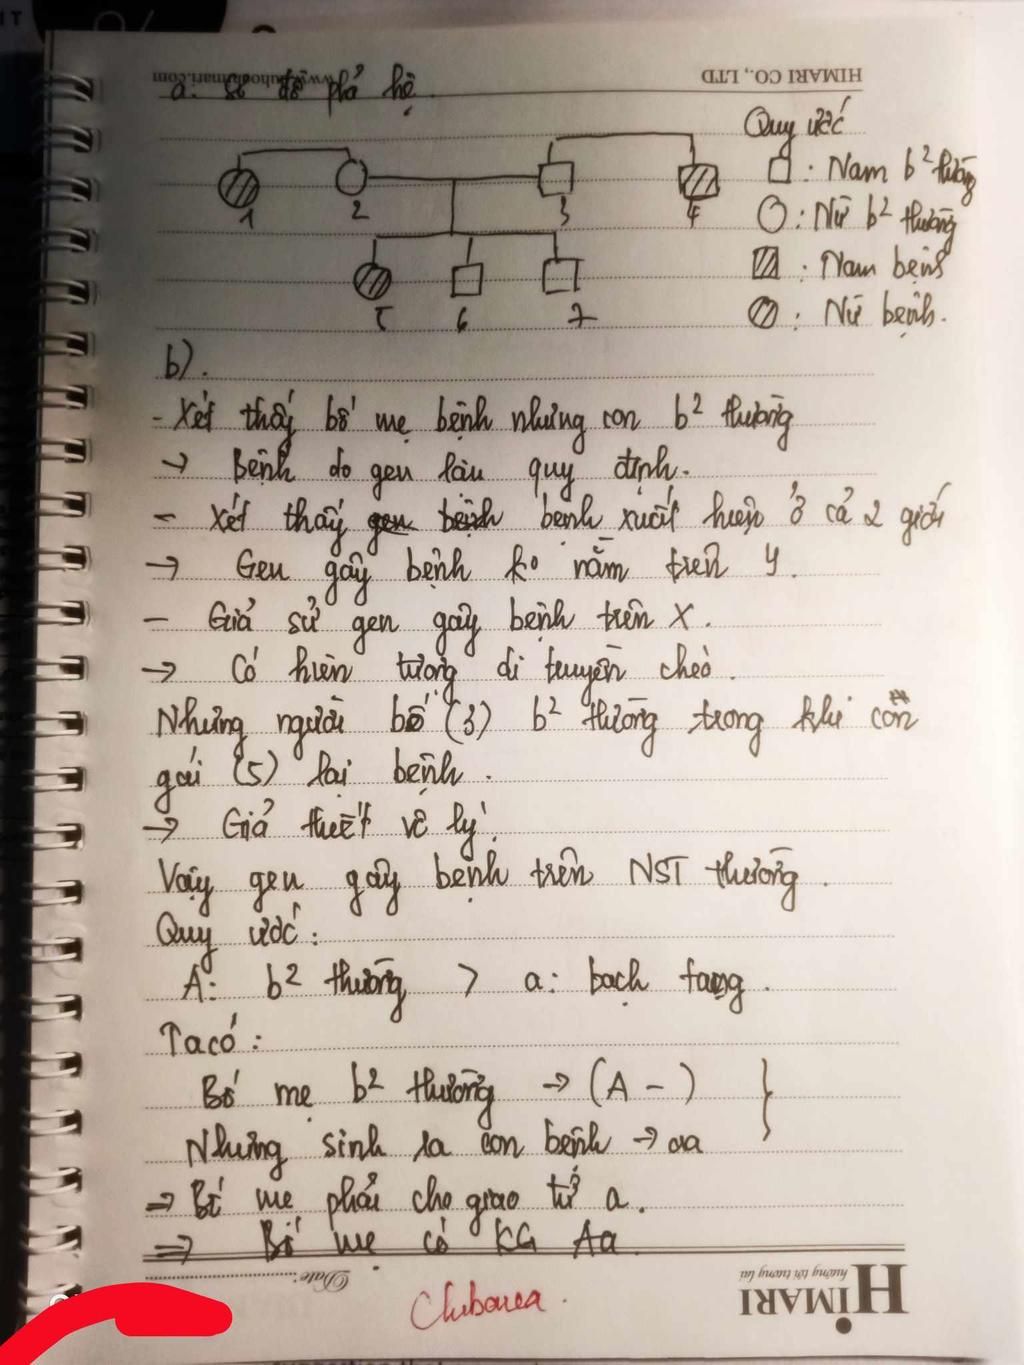 HIMARI CO., LTD
a. sơ đồ phả hệ.
Quy ước
: Nam b² thường
: Nữ b² thường
: Nam bệnh
: Nữ bệnh.
1
2
3
4
5
6
7
b).
- Xét thấy bố mẹ bệnh nhưng con b² thường
→ Bệnh do gen lặn quy định.
- Xét thấy gen bệnh bệnh xuất hiện ở cả 2 giới
→ Gen gây bệnh ko nằm trên Y.
- Giả sử gen gây bệnh trên X.
→ Có hiện tượng di truyền chéo.
Nhưng người bố (3) b² thường trong khi con
gái (5) lại bệnh.
→ Giả thiết vô lý.
Vậy gen gây bệnh trên NST thường.
Quy ước:
A: b² thường > a: bạch tạng.
Ta có:
Bố mẹ b² thường → (A - )
Nhưng sinh ra con bệnh → aa
⇒ Bố mẹ phải cho giao tử a.
⇒ Bố mẹ có KG Aa
Date:
HIMARI
hướng tới tương lai